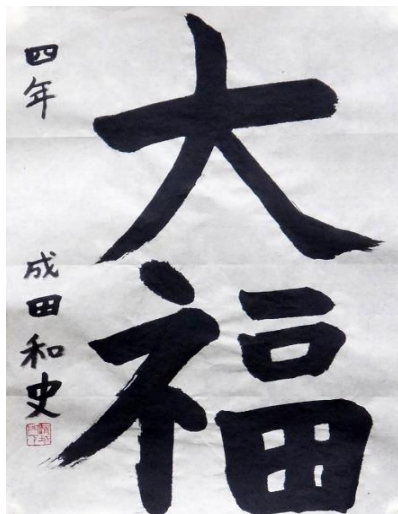 大福
四年 成田和史